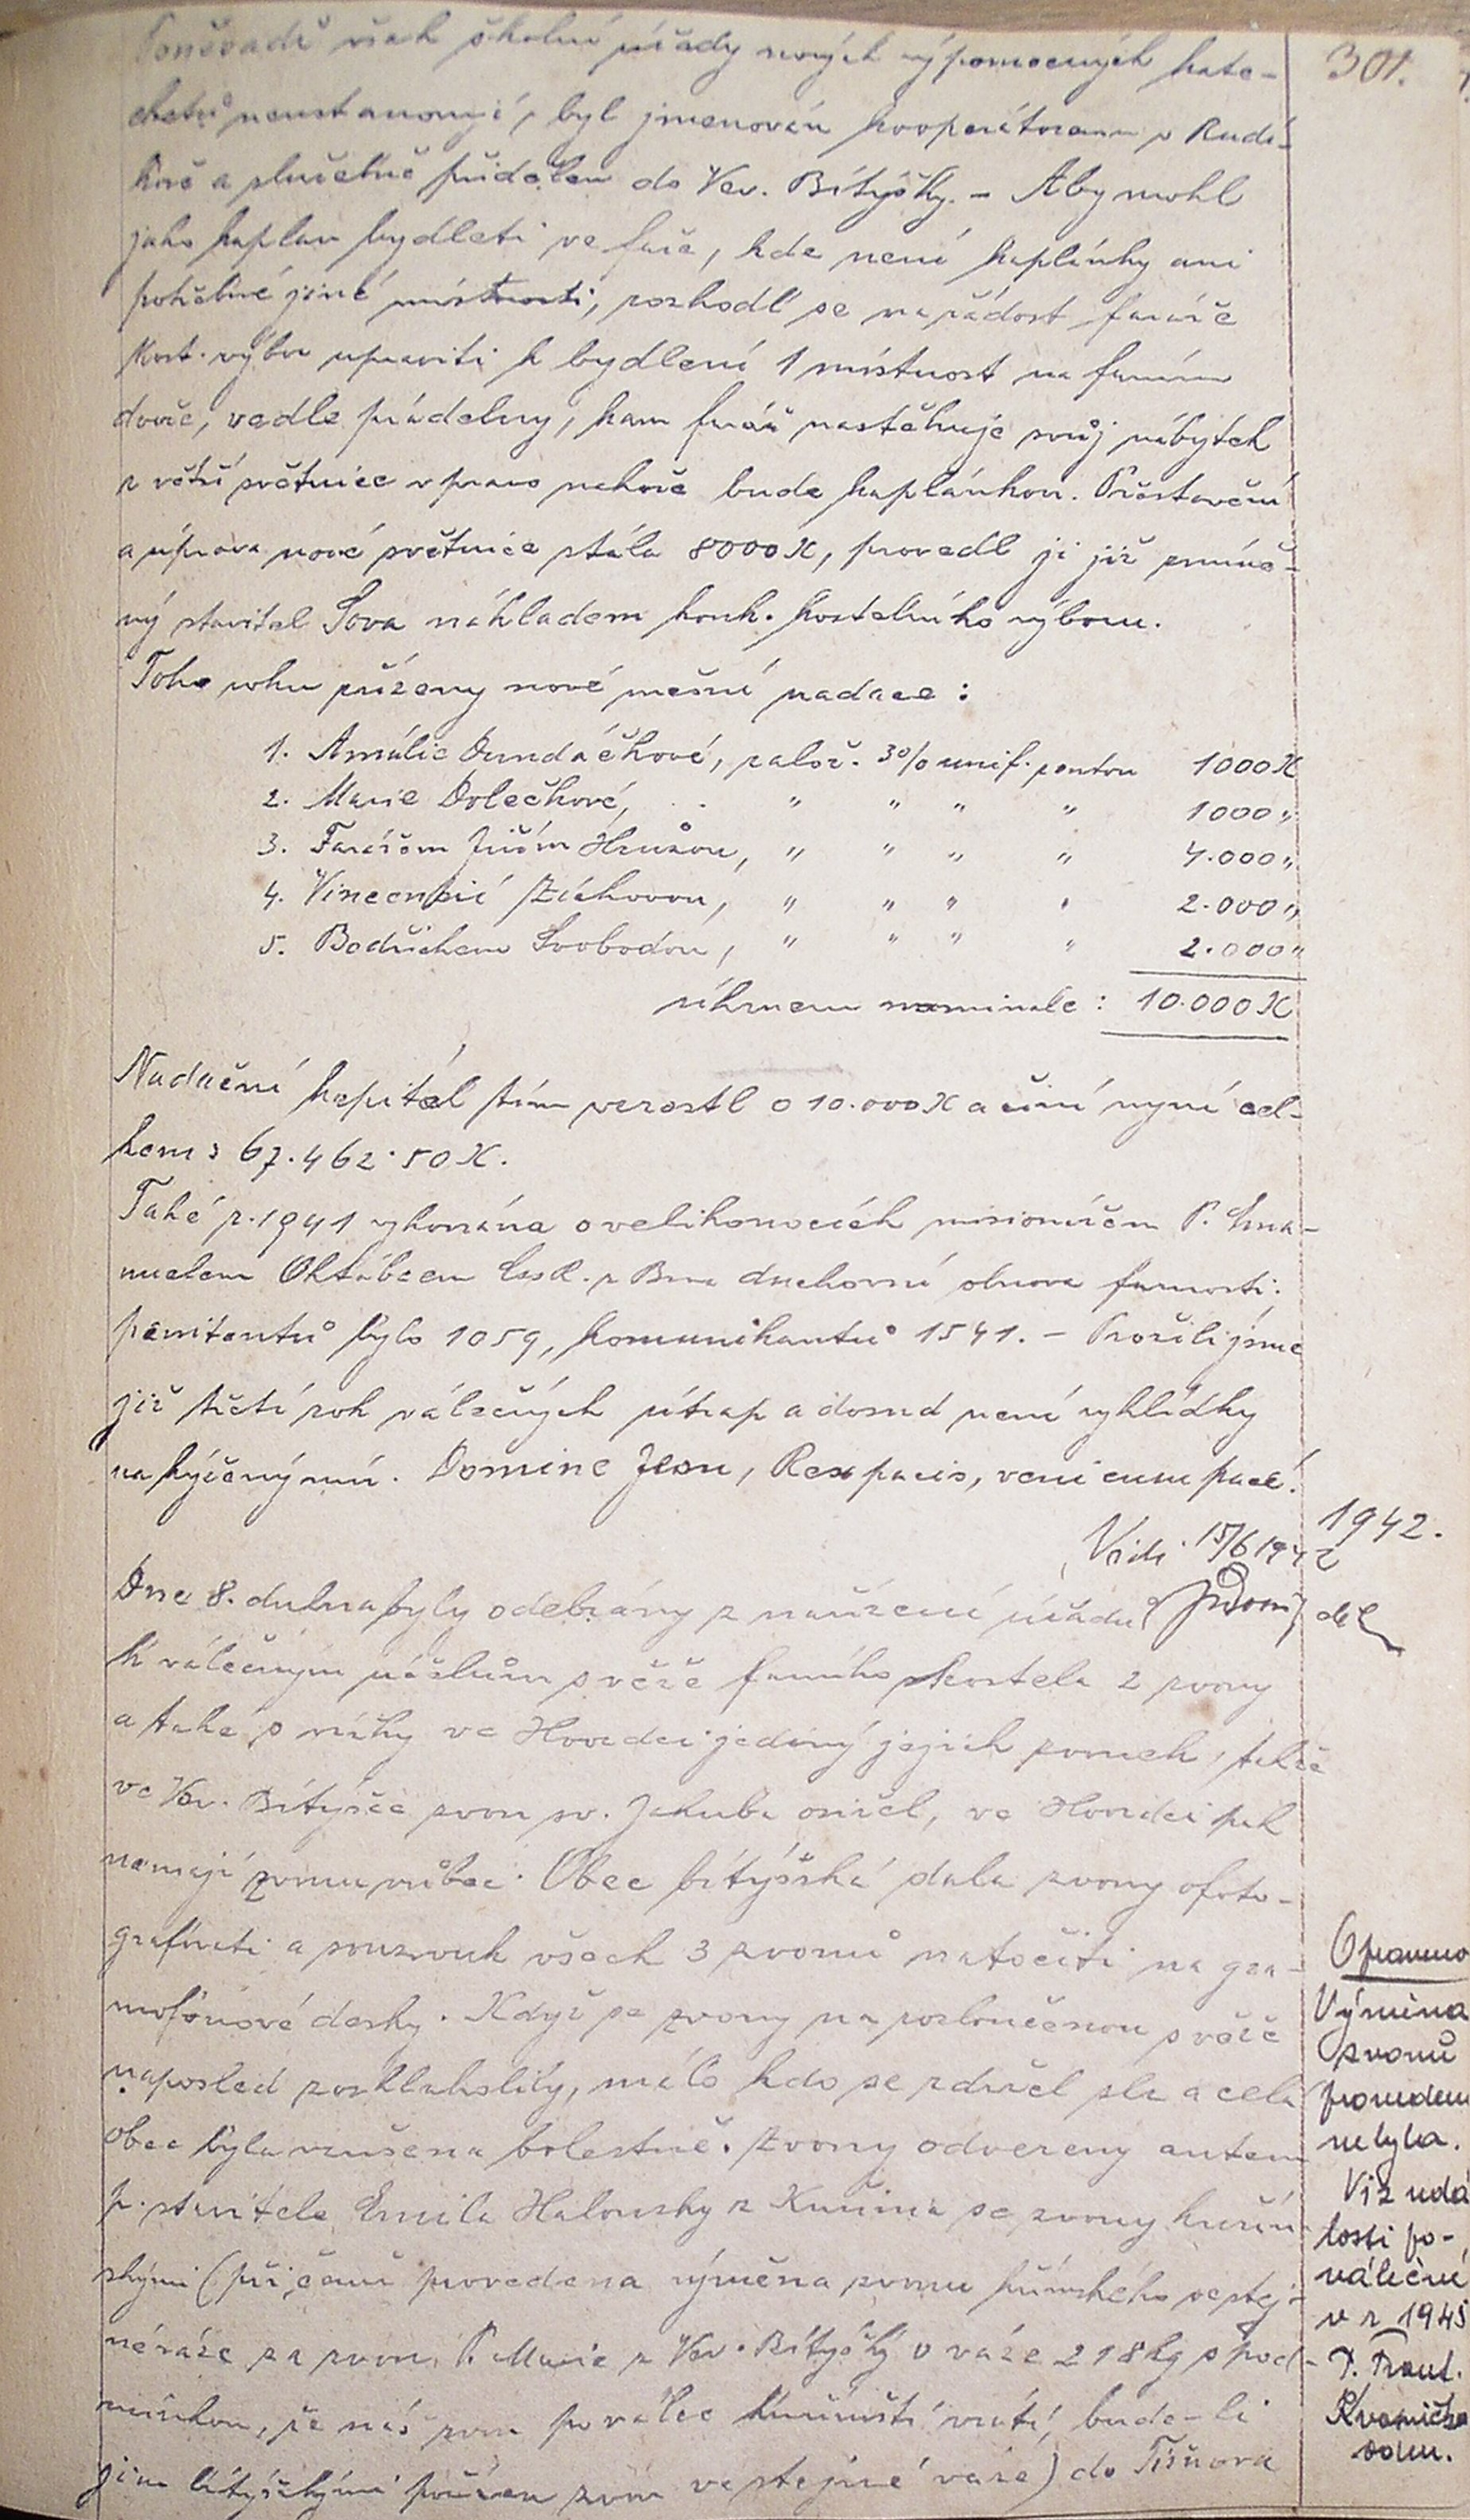 301.
Poněvadž však školní úřady nových výpomocných kate-
chetů neustanovují, byl jmenován kooperátorem v Rudí-
kově a služebně přidělen do Vev. Bítýšky. - Aby mohl
jako kaplan bydleti ve faře, kde není kaplánky ani
potřebné jiné místnosti, rozhodl se na žádost faráře
kost. výbor upraviti k bydlení 1 místnost na farním
dvoře, vedle prádelny, kam farář nastěhuje svůj nábytek
a větší světnice vpravo nahoře bude kaplánkou. Přestavění
a úprava nové světnice stála 8000 K, provedl ji již zmíně-
ný stavitel Sova nákladem konk. kostelního výboru.
Toho roku zřízeny nové mešní nadace:
1. Amálie Dundáčkové, založ. 3% unif. rentou 1000 K
2. Marie Dolečkové, " " " " 1000 "
3. Farářem Jiřím Hruzou, " " " " 4.000 "
4. Vincencií Zichovou, " " " " 2.000 "
5. Bedřichem Svobodou, " " " " 2.000 "
úhrnem nominale: 10.000 K
Nadační kapitál tím vzrostl o 10.000 K a činí nyní cel-
kem: 67.462.50 K.
Také r. 1941 vykonána o velikonocích misionářem P. Ema-
nuelem Oktábcem CssR. z Brna duchovní obnova farnosti:
penitentů bylo 1059, komunikantů 1541. - Prožili jsme
již třetí rok válečných útrap a dosud není vyhlídky
na kýžený mír. Domine Jesu, Rex pacis, veni cum pace!
1942.
Vidi 15/6 1942
děk
Dne 8. dubna byly odebrány z nařízení úřadů
k válečným účelům s věže farního kostela 2 zvony
a také s věžky ve Hvozdci jediný jejich zvonek, takže
ve Vev. Bítýšce zvon sv. Jakuba osiřel, ve Hvozdci pak
nemají zvonu vůbec. Obec bítýšská dala zvony ofoto-
grafovati a souzvuk všech 3 zvonů natočiti na gra-
mofonové desky. Když se zvony na rozloučenou s věže
naposled rozhlaholily, málo kdo se zdržel slz a celá
obec byla vzrušena bolestně. Zvony odvezeny autem
p. stavitele Emila Halouzky z Kuřimi se zvony kuřim-
skými (při čemž provedena výměna zvonu kuřimského ve stej-
né váze za zvon P. Marie z Vev. Bítýšky o váze 218 kg s pod-
mínkou, že náš zvon po válce kuřimští vrátí, bude-li
jim bítýšskými pořízen zvon ve stejné váze) do Tišnova
Opraveno
Výměna
zvonů
provedena
nebyla.
Viz udá
losti po-
válečné
v r. 1945
P. Frant.
Kvasnička